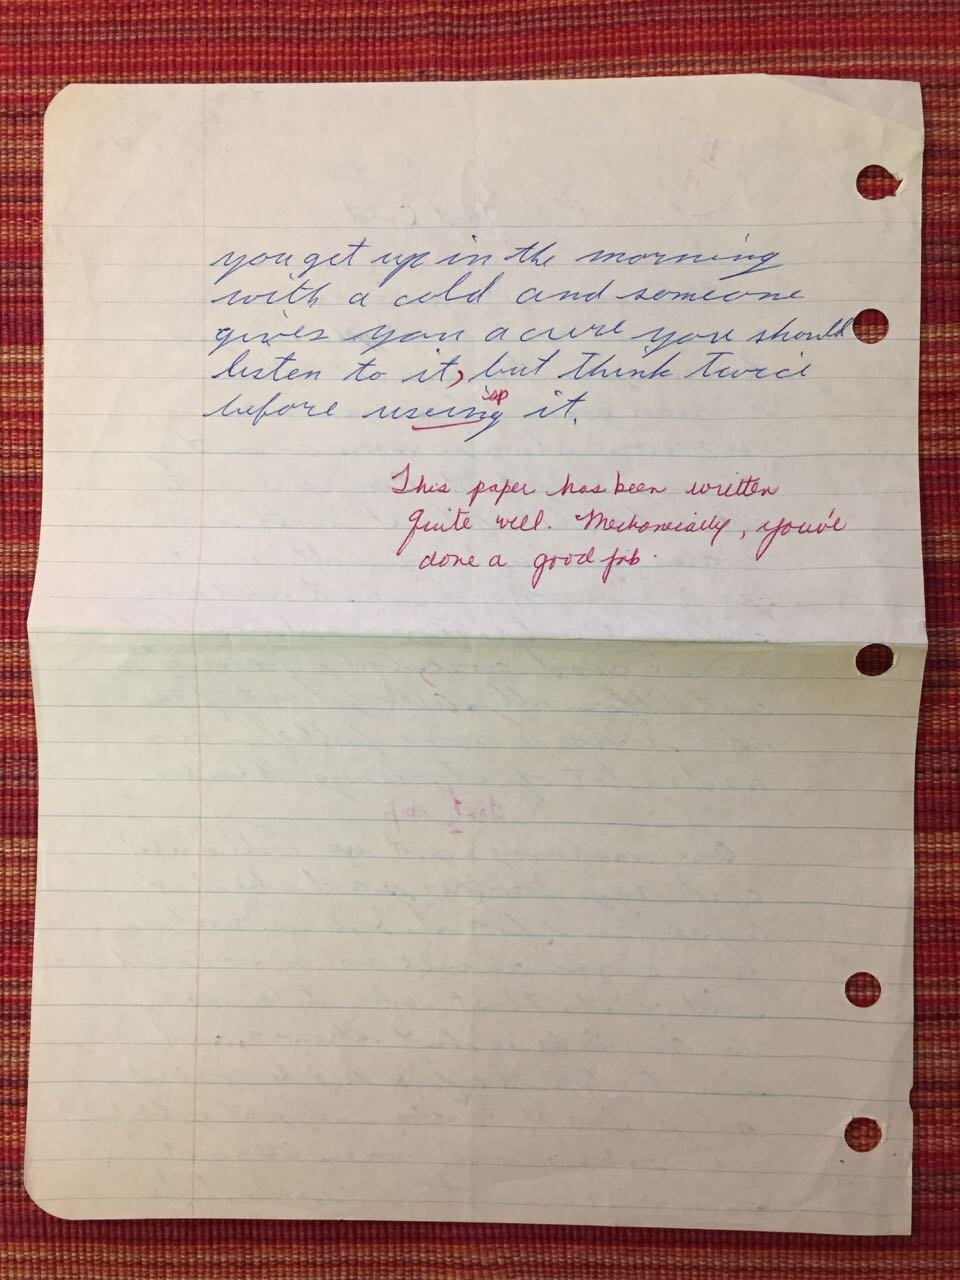 you get up in the morning
with a cold and someone
gives you a cure you should
listen to it, but think twice
sp
before useing it.
This paper has been written
quite well. Mechanically, you've
done a good job.